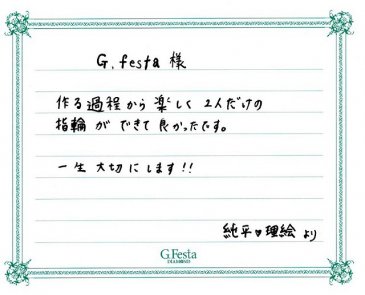 G.festa 様
作る過程から楽しく 2人だけの
指輪ができて良かったです。
一生大切にします!!
純平♥理絵より
G.Festa
DIAMOND